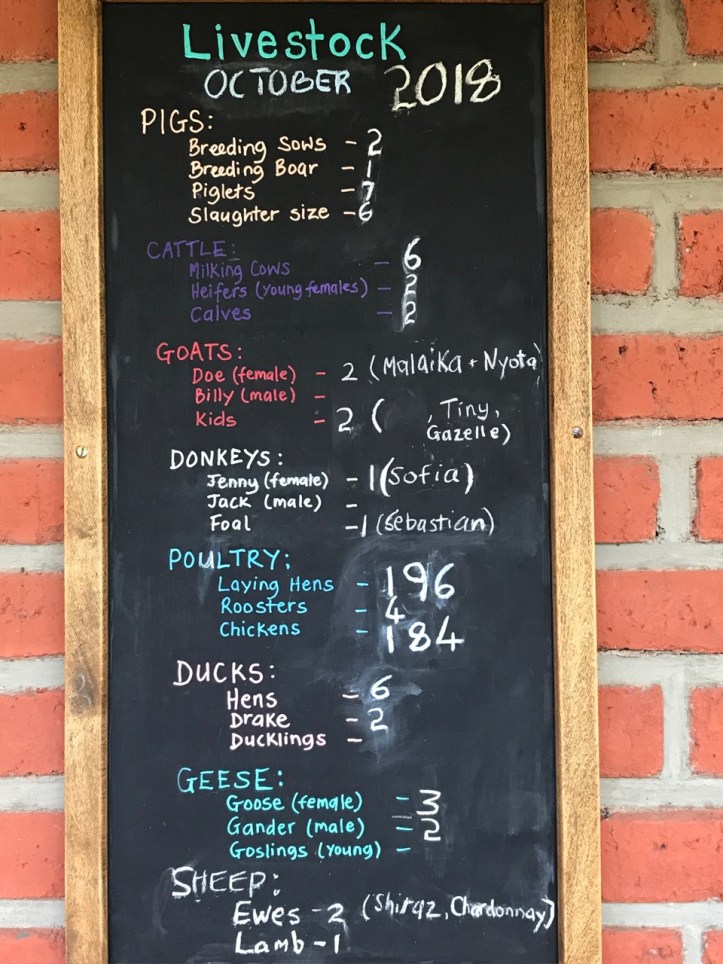 Livestock
OCTOBER 2018
PIGS:
Breeding Sows - 2
Breeding Boar - 1
Piglets - 7
Slaughter size - 6
CATTLE:
Milking Cows - 6
Heifers (young females) - 2
Calves - 2
GOATS:
Doe (female) - 2 (Malaika + Nyota)
Billy (male) -
Kids - 2 ( , Tiny,
Gazelle)
DONKEYS:
Jenny (female) - 1 (Sofia)
Jack (male) -
Foal - 1 (Sebastian)
POULTRY:
Laying Hens - 196
Roosters - 4
Chickens - 184
DUCKS:
Hens - 6
Drake - 2
Ducklings -
GEESE:
Goose (female) - 3
Gander (male) - 2
Goslings (young) -
SHEEP:
Ewes - 2 (Shiraz, Chardonnay)
Lamb - 1